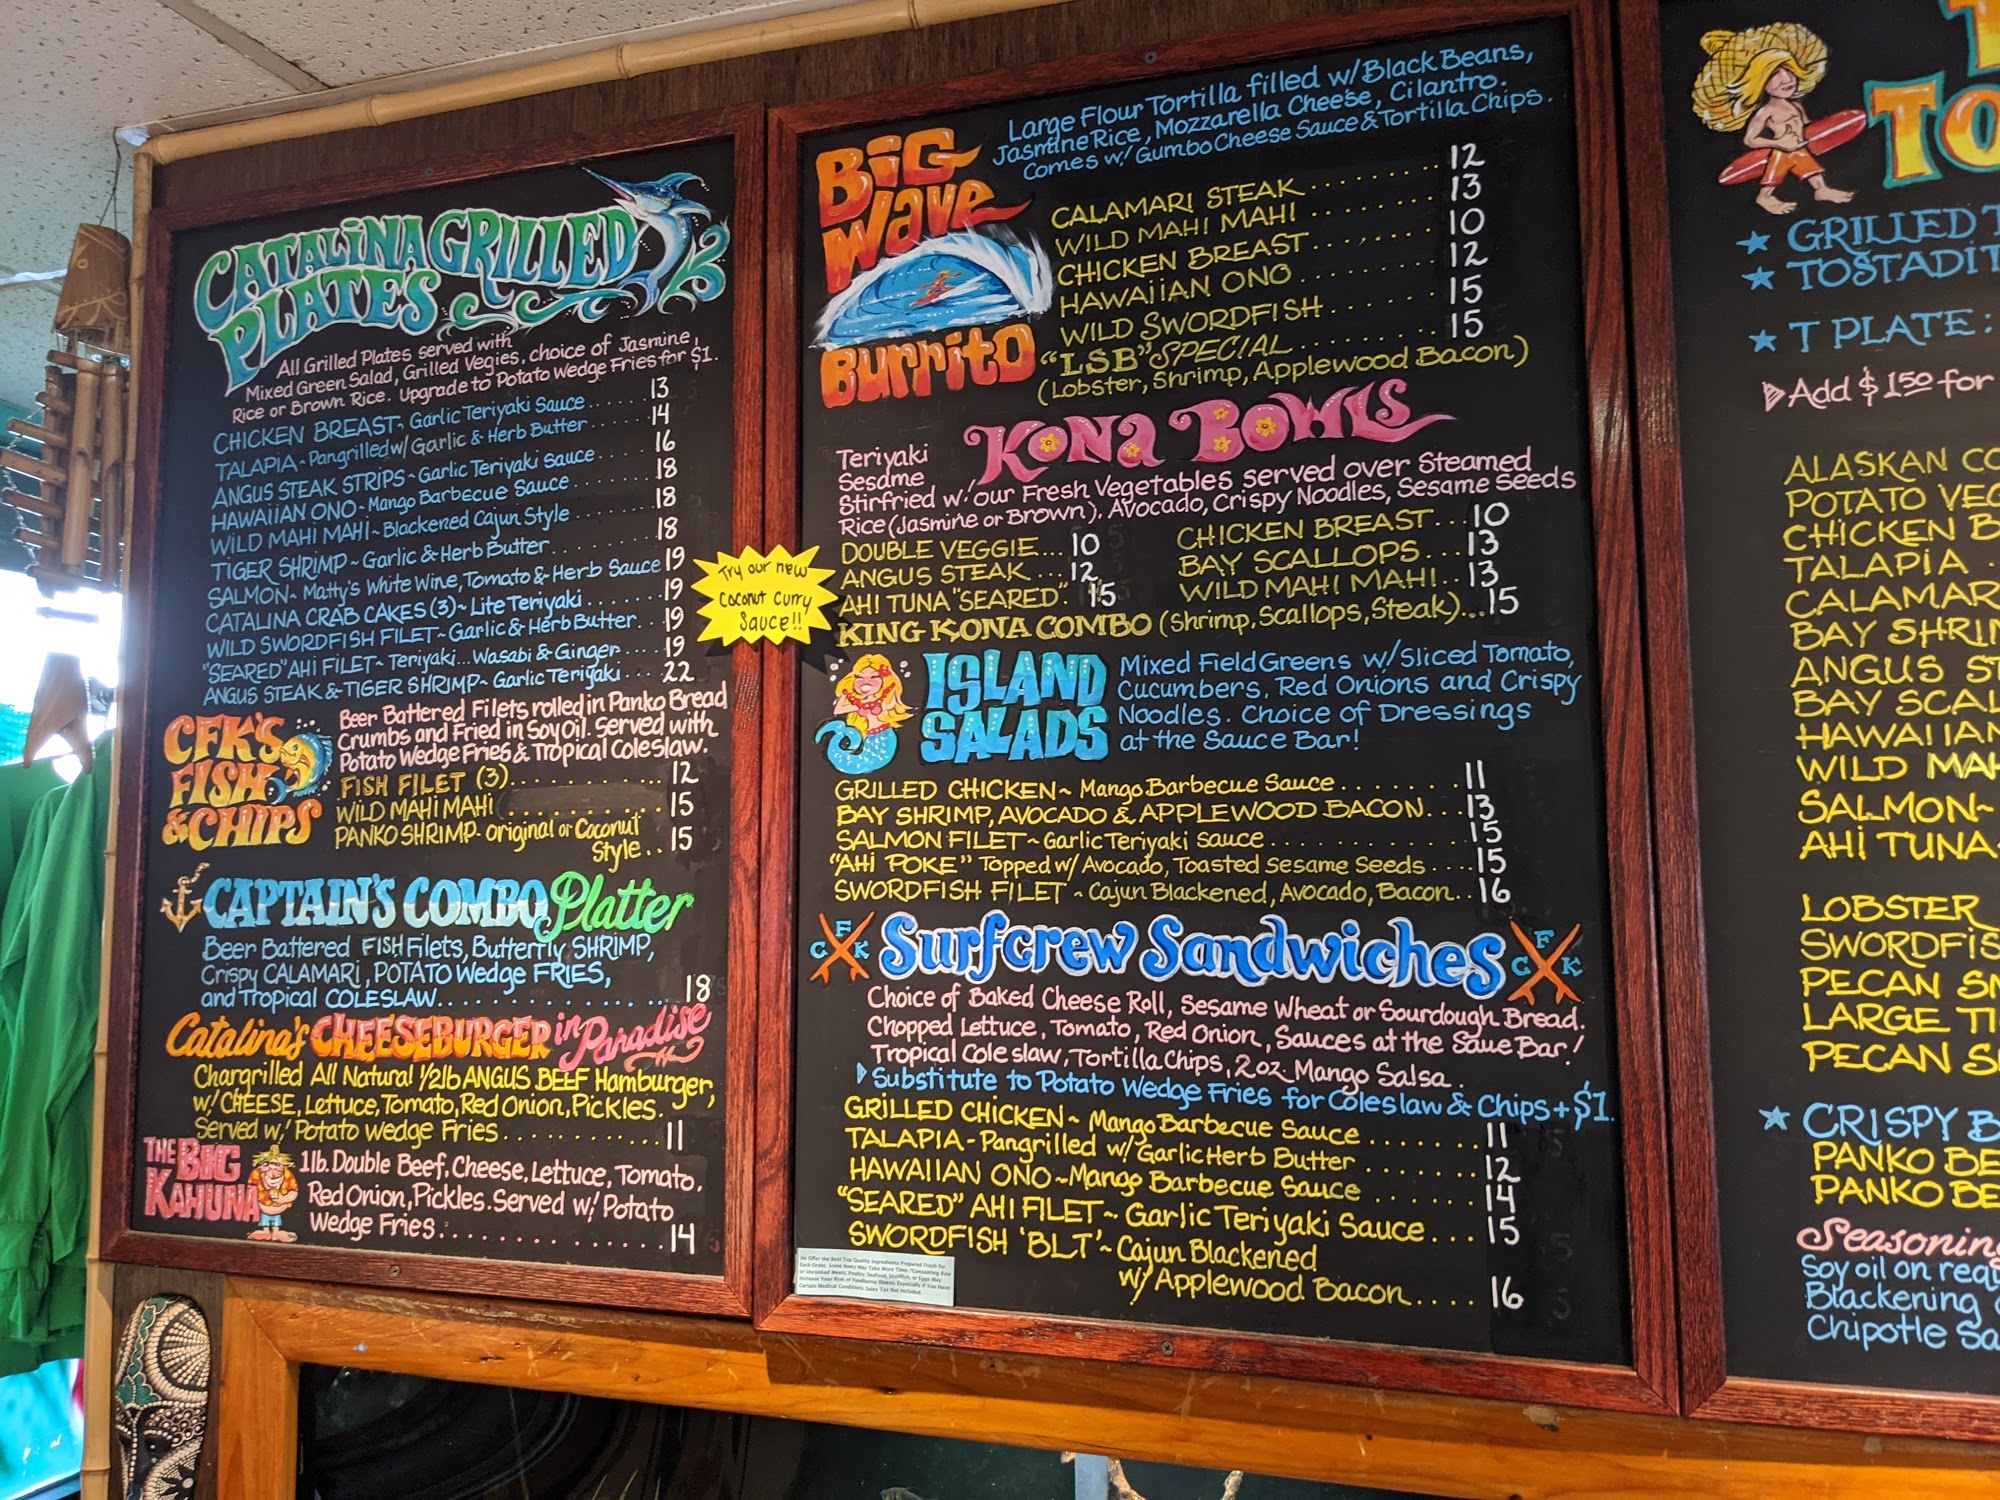 CATALINA GRILLED
PLATES
All Grilled Plates served with
Mixed Green Salad, Grilled Vegies, choice of Jasmine,
Rice or Brown Rice. Upgrade to Potato Wedge Fries for $1.
CHICKEN BREAST~ Garlic Teriyaki Sauce...... 13
TALAPIA~Pangrilled w/ Garlic & Herb Butter...... 14
ANGUS STEAK STRIPS~Garlic Teriyaki Sauce.... 16
HAWAIIAN ONO~Mango Barbecue Sauce....... 18
WILD MAHI MAHI~Blackened Cajun Style....... 18
TIGER SHRIMP~Garlic & Herb Butter......... 18
SALMON~Matty's White Wine, Tomato & Herb Sauce 19
CATALINA CRAB CAKES (3)~Lite Teriyaki........ 19
WILD SWORDFISH FILET~Garlic & Herb Butter... 19
"SEARED" AHI FILET~Teriyaki...Wasabi & Ginger.... 19
ANGUS STEAK & TIGER SHRIMP~Garlic Teriyaki... 22
CFK'S
FISH
& CHIPS
Beer Battered Filets rolled in Panko Bread
Crumbs and Fried in Soy Oil. Served with
Potato Wedge Fries & Tropical Coleslaw.
FISH FILET (3)............... 12
WILD MAHI MAHI............... 15
PANKO SHRIMP~Original or Coconut
Style.. 15
CAPTAIN'S COMBO Platter
Beer Battered FISH Filets, Butterfly SHRIMP,
Crispy CALAMARI, POTATO Wedge FRIES,
and Tropical COLESLAW................ 18
Catalina's CHEESEBURGER in Paradise
Chargrilled All Natural 1/2lb ANGUS BEEF Hamburger,
w/ CHEESE, Lettuce, Tomato, Red Onion, Pickles.
Served w/ Potato Wedge Fries............ 11
THE BIG
KAHUNA
1lb. Double Beef, Cheese, Lettuce, Tomato,
Red Onion, Pickles. Served w/ Potato
Wedge Fries:............... 14
Try our new
Coconut Curry
Sauce!!
BIG
Wave
BURRITO
Large Flour Tortilla filled w/ Black Beans,
Jasmine Rice, Mozzarella Cheese, Cilantro.
Comes w/ Gumbo Cheese Sauce & Tortilla Chips.
CALAMARI STEAK.......... 12
WILD MAHI MAHI.......... 13
CHICKEN BREAST......... 10
HAWAIIAN ONO.......... 12
WILD SWORDFISH........ 15
"LSB" SPECIAL.......... 15
(Lobster, Shrimp, Applewood Bacon)
KONA BOWLS
Teriyaki
Sesame
Stirfried w/ our Fresh Vegetables served over Steamed
Rice (Jasmine or Brown), Avocado, Crispy Noodles, Sesame Seeds
DOUBLE VEGGIE... 10
ANGUS STEAK.... 12
AHI TUNA "SEARED". 15
CHICKEN BREAST... 10
BAY SCALLOPS... 13
WILD MAHI MAHI.. 13
KING KONA COMBO (Shrimp, Scallops, Steak)... 15
ISLAND
SALADS
Mixed Field Greens w/ Sliced Tomato,
Cucumbers, Red Onions and Crispy
Noodles. Choice of Dressings
at the Sauce Bar!
GRILLED CHICKEN~ Mango Barbecue Sauce........ 11
BAY SHRIMP, AVOCADO & APPLEWOOD BACON... 13
SALMON FILET~Garlic Teriyaki Sauce............. 15
"AHI POKE" Topped w/ Avocado, Toasted Sesame Seeds.... 15
SWORDFISH FILET~Cajun Blackened, Avocado, Bacon.. 16
C F K
Surfcrew Sandwiches
C F K
Choice of Baked Cheese Roll, Sesame Wheat or Sourdough Bread.
Chopped Lettuce, Tomato, Red Onion, Sauces at the Saue Bar!
Tropical Cole slaw, Tortilla Chips, 2 oz. Mango Salsa.
Substitute to Potato Wedge Fries for Coleslaw & Chips + $1.
GRILLED CHICKEN~ Mango Barbecue Sauce....... 11
TALAPIA~Pangrilled w/ Garlic Herb Butter........ 12
HAWAIIAN ONO~Mango Barbecue Sauce...... 14
"SEARED" AHI FILET~ Garlic Teriyaki Sauce... 15
SWORDFISH 'BLT'~ Cajun Blackened
w/ Applewood Bacon.... 16
We Offer the Best Top Quality Ingredients Prepared Fresh for
Each Order, Some Items May Take More Time. *Consuming Raw
or Uncooked Meats, Poultry, Seafood, Shellfish, or Eggs May
Increase Your Risk of Foodborne Illness, Especially if You Have
Certain Medical Conditions. Sales Tax Not Included.
GRILLED
T PLATE:
Add $1.50 for
ALASKAN
POTATO
CHICKEN
TALAPIA
BAY
ANGUS
BAY
WILD
SALMON~
AHI TUNA
LOBSTER
PECAN
LARGE
PECAN
CRISPY
PANKO
PANKO
Soy oil on
Blackening
Chipotle